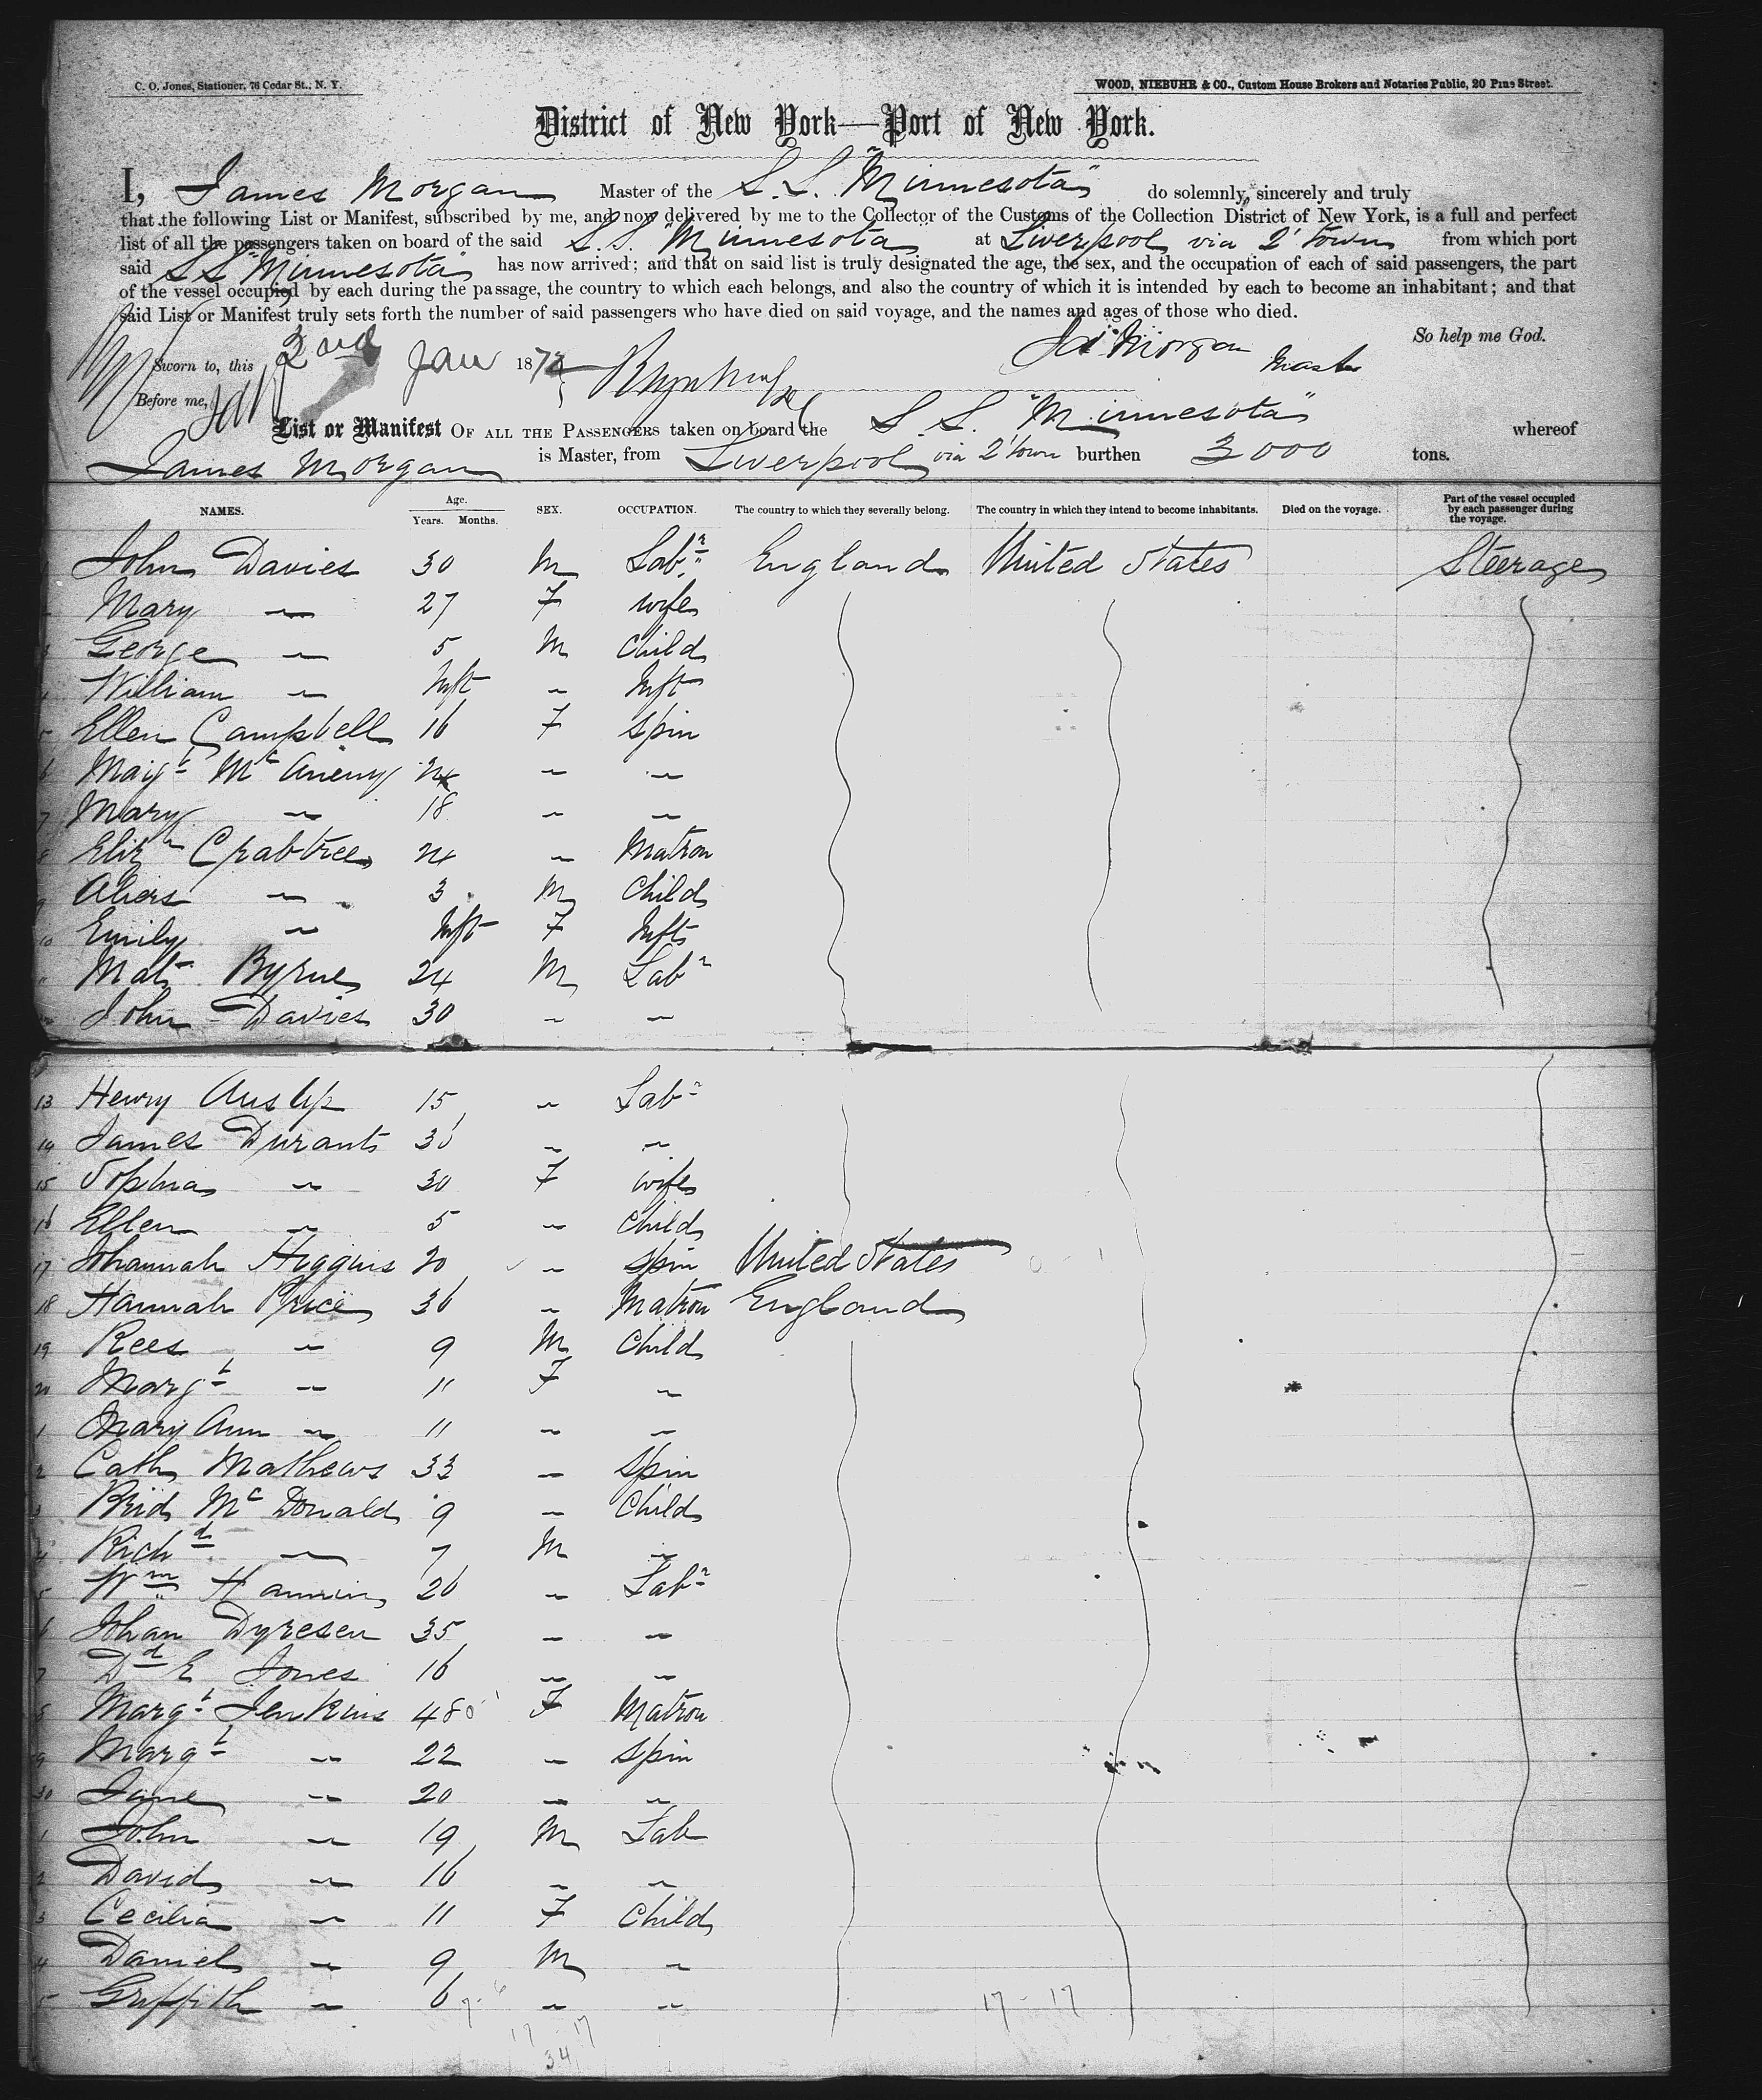 C. O. Jones, Stationer, 76 Cedar St., N. Y.
WOOD, NIEBUHR & CO., Custom House Brokers and Notaries Public, 20 Pine Street.
District of New York—Port of New York.
I, James Morgan Master of the S.S. "Minnesota" do solemnly, sincerely and truly
that the following List or Manifest, subscribed by me, and now delivered by me to the Collector of the Customs of the Collection District of New York, is a full and perfect
list of all the passengers taken on board of the said S.S. "Minnesota" at Liverpool via Q'town from which port
said S.S. "Minnesota" has now arrived; and that on said list is truly designated the age, the sex, and the occupation of each of said passengers, the part
of the vessel occupied by each during the passage, the country to which each belongs, and also the country of which it is intended by each to become an inhabitant; and that
said List or Manifest truly sets forth the number of said passengers who have died on said voyage, and the names and ages of those who died.
So help me God.
Sworn to, this 2nd Jan 187 Jas Morgan Master
Before me,
List or Manifest OF ALL THE PASSENGERS taken on board the S. S. "Minnesota" whereof
James Morgan is Master, from Liverpool via Q'town burthen 3000 tons.
NAMES. Age. Years. Months. SEX. OCCUPATION. The country to which they severally belong. The country in which they intend to become inhabitants. Died on the voyage. Part of the vessel occupied by each passenger during the voyage.
John Davies 30 M Labr England United States Steerage
Mary " 27 F wife
3 George " 5 M Child
William " Inft " Inft
5 Ellen Campbell 16 F Spin
6 Margt Mc Aneny 24 " "
7 Mary " 18 " "
8 Elizh Crabtree 24 " Matron
9 " 3 M Child
10 Emily " Inft F Inft
Mat Byrne 24 M Labr
John Davies 30 " "
13 Henry 15 " Labr
14 James Durant 36 " "
15 Sophia " 30 F wife
16 Ellen " 5 " Child
17 Johannah Higgins 20 " Spin United States
18 Hannah Price 36 " Matron England
19 Rees " 9 M Child
20 Margt " 11 F "
1 Mary Ann " 11 " "
2 Cath Mathews 33 " Spin
3 Brid Mc Donald 9 " Child
4 Richd " 7 M "
5 Wm 26 " Labr
6 Johan Dyresen 35 " "
7 Dd E Jones 16 " "
8 Margt Jenkins 48 F Matron
9 Margt " 22 " Spin
30 Jane " 20 " "
1 John " 19 M Lab
2 David " 16 " "
3 Cecilia " 11 F Child
4 Daniel " 9 M "
5 Griffith " 6 " "
17 - 17
17 17
34